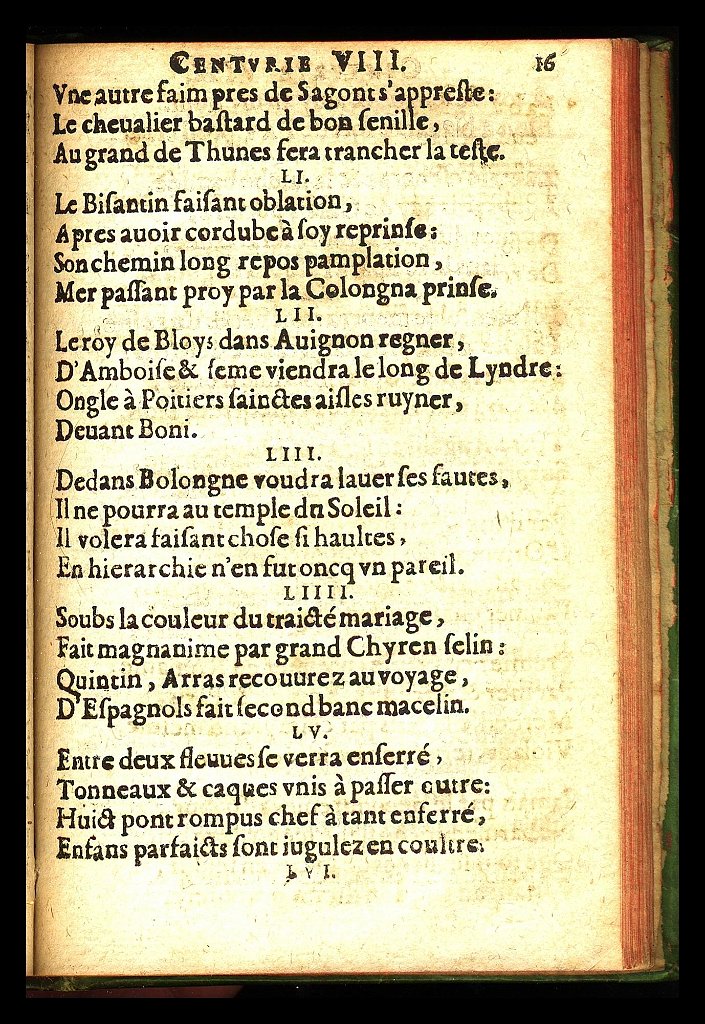 CENTVRIE VIII. 16
Vne autre faim pres de Sagont s'appreſte:
Le cheualier baſtard de bon ſenille,
Au grand de Thunes fera trancher la teſte.
LI.
Le Biſantin faiſant oblation,
Apres auoir cordube à ſoy reprinſe:
Son chemin long repos pamplation,
Mer paſſant proy par la Colongna prinſe.
LII.
Le roy de Bloys dans Auignon regner,
D'Amboiſe & ſeme viendra le long de Lyndre:
Ongle à Poitiers ſainctes aiſles ruyner,
Deuant Boni.
LIII.
Dedans Bolongne voudra lauer ſes fautes,
Il ne pourra au temple dn Soleil:
Il volera faiſant choſe ſi haultes,
En hierarchie n'en fut oncq vn pareil.
LIIII.
Soubs la couleur du traicté mariage,
Fait magnanime par grand Chyren ſelin:
Quintin, Arras recouurez au voyage,
D'Eſpagnols fait ſecond banc macelin.
LV.
Entre deux fleuues ſe verra enſerré,
Tonneaux & caques vnis à paſſer outre:
Huict pont rompus chef à tant enferré,
Enfans parfaicts ſont iugulez en coultre.
LVI.